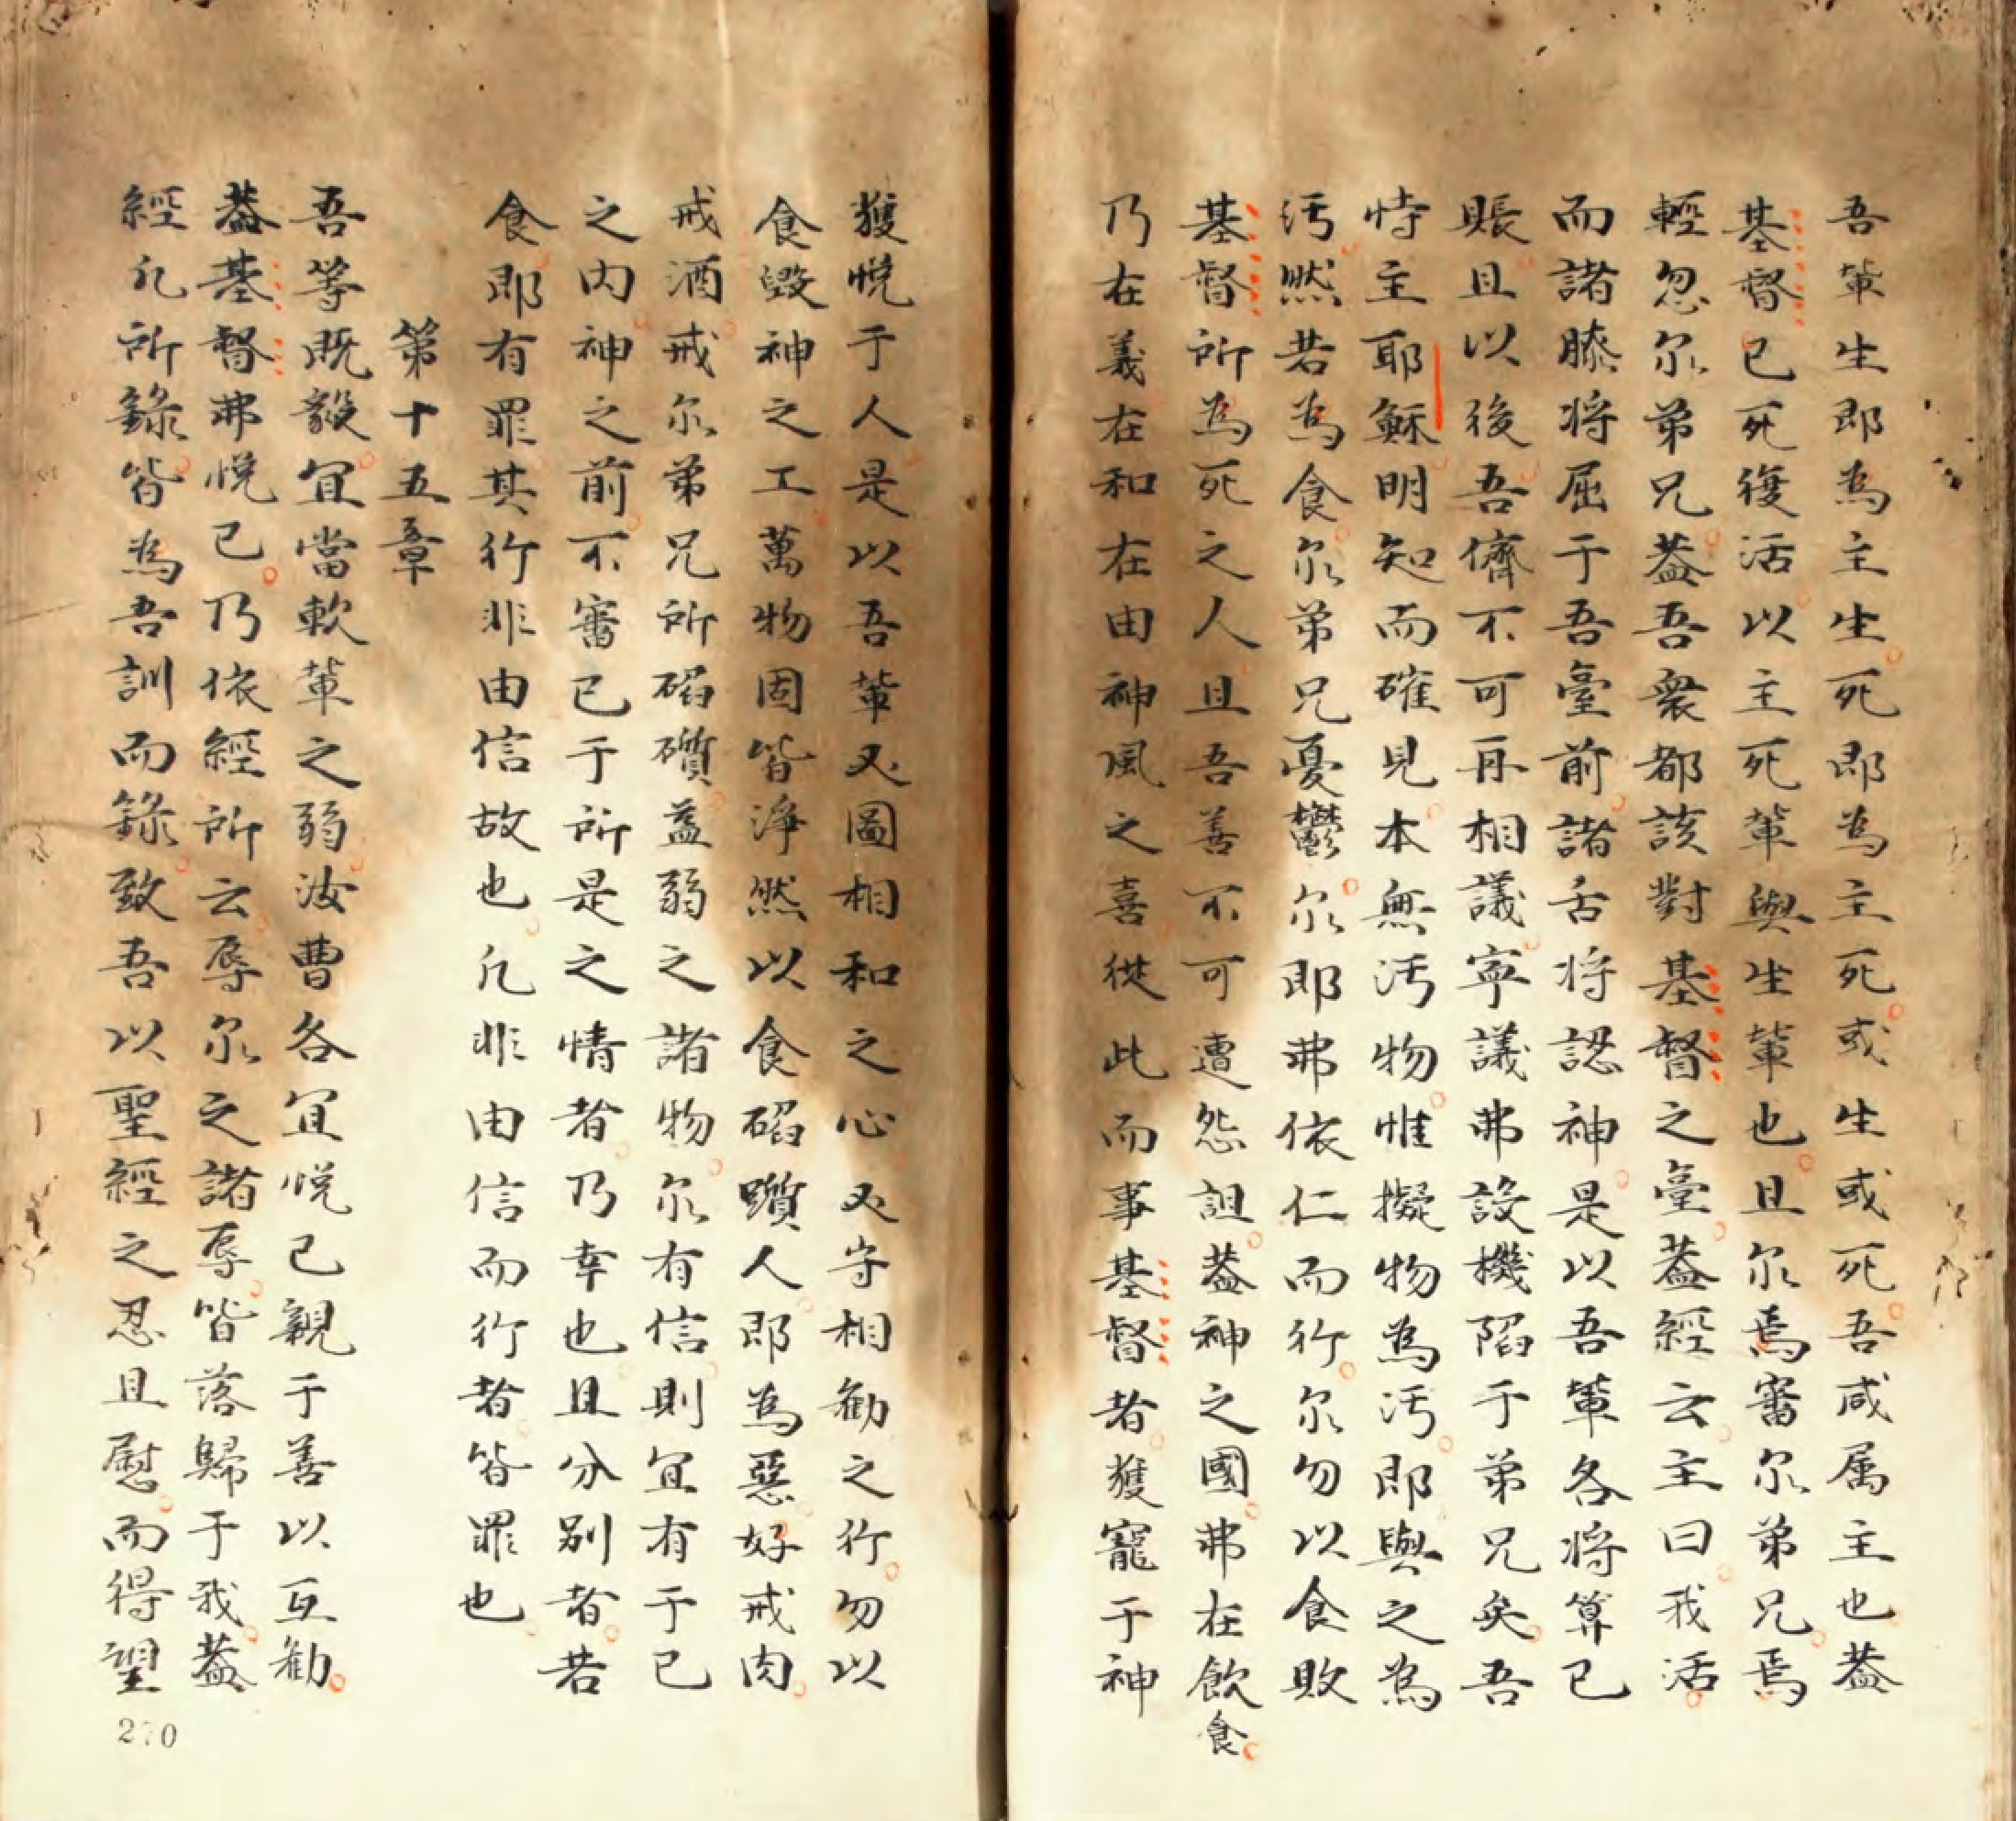 吾軰生即為主生死即為主死或生或死吾咸属主也蓋
基督已死復活以主死軰與生軰也且尔焉審尔弟兄焉
輕忽尔弟兄蓋吾衆都該對基督之臺蓋經云主曰我活
而諸膝将屈于吾臺前諸舌将認神是以吾軰各将算已
賬且以後吾儕不可再相議寧議弗設機陷于弟兄矣吾
恃主耶穌明知而確見本無汚物惟擬物為汚即與之為
汚然若為食尔弟兄憂鬱尔即弗依仁而行尔勿以食敗
基督所為死之人且吾善不可遭怨詛蓋神之國弗在飲食
乃在義在和在由神風之喜從此而事基督者獲寵于神
獲悅于人是以吾軰又圖相和之心又守相勸之行勿以
食毀神之工萬物固皆淨然以食磖躓人即為惡好戒肉
戒酒戒尔弟兄所磖礩蓋弱之諸物尔有信則宜有于已
之内神之前不審已于所是之情者乃幸也且分别者若
食即有罪其行非由信故也凡非由信而行者皆罪也
第十五章
吾等既毅宜當軟軰之弱汝曹各宜悅已親于善以互勸
蓋基督弗悅已乃依經所云辱尔之諸辱皆落歸于我蓋
經凡所錄皆為吾訓而錄致吾以聖經之忍且慰而得望
270